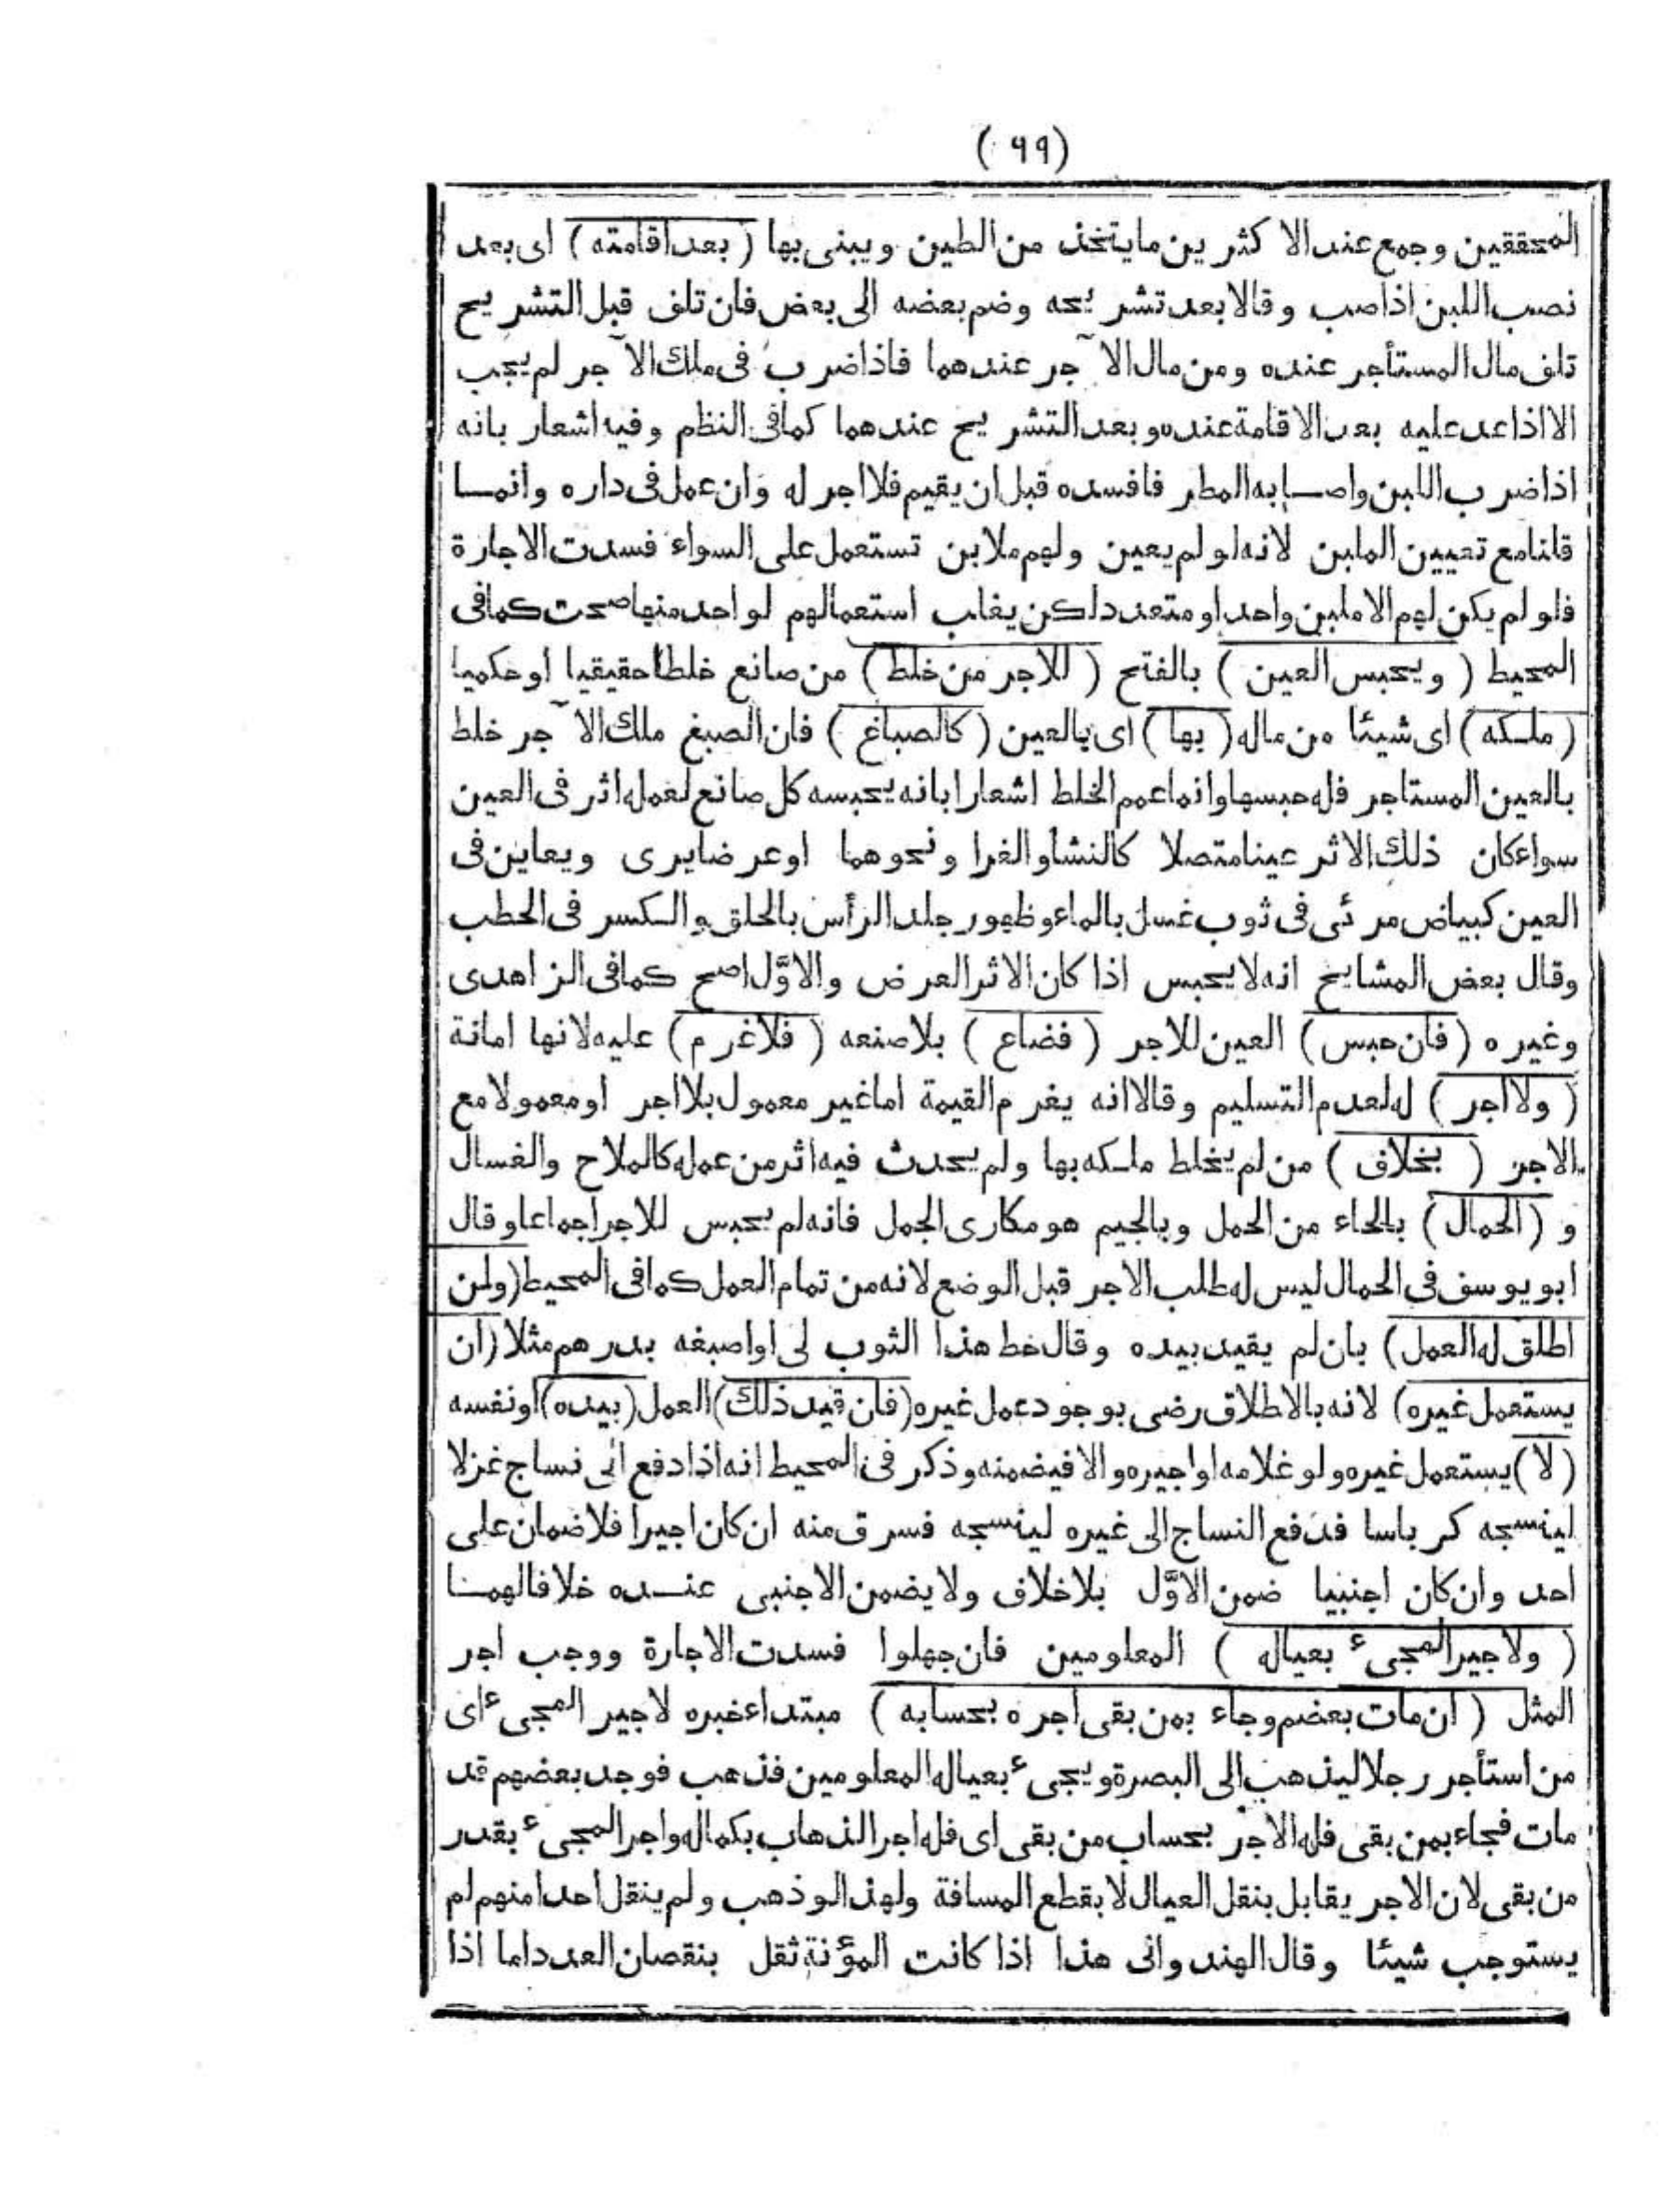 (٩٩)
المحققين وجمع عند الاكثرين ما يتخذ من الطين ويبنى بها (بعد اقامته) اى بعد
نصب اللبن اذا صب وقالا بعد تشريحه وضم بعضه الى بعض فان تلف قبل التشريح
تلف مال المستأجر عنده ومن مال الآجر عندهما فاذا ضرب فى ملك الآجر لم يجب
الا اذا عد عليه بعد الاقامة عنده وبعد التشريح عندهما كما فى النظم وفيه اشعار بانه
اذا ضرب اللبن واصابه المطر فافسده قبل ان يقيم فلا اجر له وان عمل فى داره وانما
قلنا مع تعيين الملبن لانه لو لم يعين ولهم ملابن تستعمل على السواء فسدت الاجارة
فلو لم يكن لهم الا ملبن واحد او متعدد لكن يغلب استعمالهم لواحد منها صحت كما فى
المحيط (ويحبس العين) بالفتح (للاجر من خلط) من صانع خلطا حقيقيا او حكميا
(ملكه) اى شيئا من ماله (بها) اى بالعين (كالصباغ) فان الصبغ ملك الآجر خلط
بالعين المستاجر فله حبسها وانما عمم الخلط اشعارا بانه يحبسه كل صانع لعمله اثر فى العين
سواء كان ذلك الاثر عينا متصلا كالنشا والغرا ونحوهما او عرضا يرى ويعاين فى
العين كبياض مرئى فى ثوب غسل بالماء وظهور جلد الرأس بالحلق والكسر فى الحطب
وقال بعض المشايخ انه لا يحبس اذا كان الاثر العرض والاوّل اصح كما فى الزاهدى
وغيره (فان حبس) العين للاجر (فضاع) بلا صنعه (فلا غرم) عليه لانها امانة
(ولا اجر) له لعدم التسليم وقالا انه يغرم القيمة اما غير معمول بلا اجر او معمولا مع
الاجر (بخلاف) من لم يخلط ملكه بها ولم يحدث فيه اثر من عمله كالملاح والغسال
و (الحمال) بالحاء من الحمل وبالجيم هو مكارى الجمل فانه لم يحبس للاجر اجماعا وقال
ابو يوسف فى الحمال ليس له طلب الاجر قبل الوضع لانه من تمام العمل كما فى المحيط (ولمن
اطلق له العمل) بان لم يقيد بيده وقال خط هذا الثوب لى او اصبغه بدرهم مثلا (ان
يستعمل غيره) لانه بالاطلاق رضى بوجود عمل غيره (فان قيد ذلك) العمل (بيده) او نفسه
(لا) يستعمل غيره ولو غلامه او اجيره والا فيضمنه وذكر فى المحيط انه اذا دفع الى نساج غزلا
لينسجه كرباسا فدفع النساج الى غيره لينسجه فسرق منه ان كان اجيرا فلا ضمان على
احد وان كان اجنبيا ضمن الاوّل بلا خلاف ولا يضمن الاجنبى عنده خلافا لهما
(ولاجير المجىء بعياله) المعلومين فان جهلوا فسدت الاجارة ووجب اجر
المثل (ان مات بعضهم وجاء بمن بقى اجره بحسابه) مبتداء خبره لاجير المجىء اى
من استأجر رجلا ليذهب الى البصرة ويجىء بعياله المعلومين فذهب فوجد بعضهم قد
مات فجاء بمن بقى فله الاجر بحساب من بقى اى فله اجر الذهاب بكماله واجر المجىء بقدر
من بقى لان الاجر يقابل بنقل العيال لا بقطع المسافة ولهذا لو ذهب ولم ينقل احدا منهم لم
يستوجب شيئا وقال الهندوانى هذا اذا كانت المؤنة ثقل بنقصان العدد اما اذا